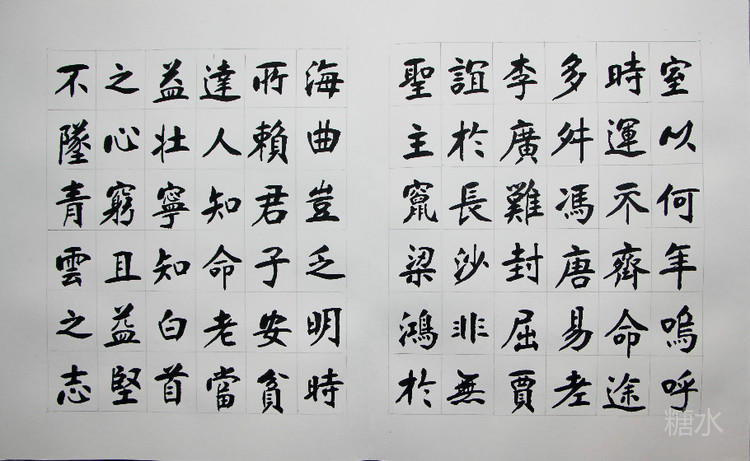 室以何年嗚呼
時運不齊命途
多舛馮唐易老
李廣難封屈賈
誼於長沙非無
聖主竄梁鴻於
海曲豈乏明時
所賴君子安貧
達人知命老當
益壯寧知白首
之心窮且益堅
不墜青雲之志
糖水